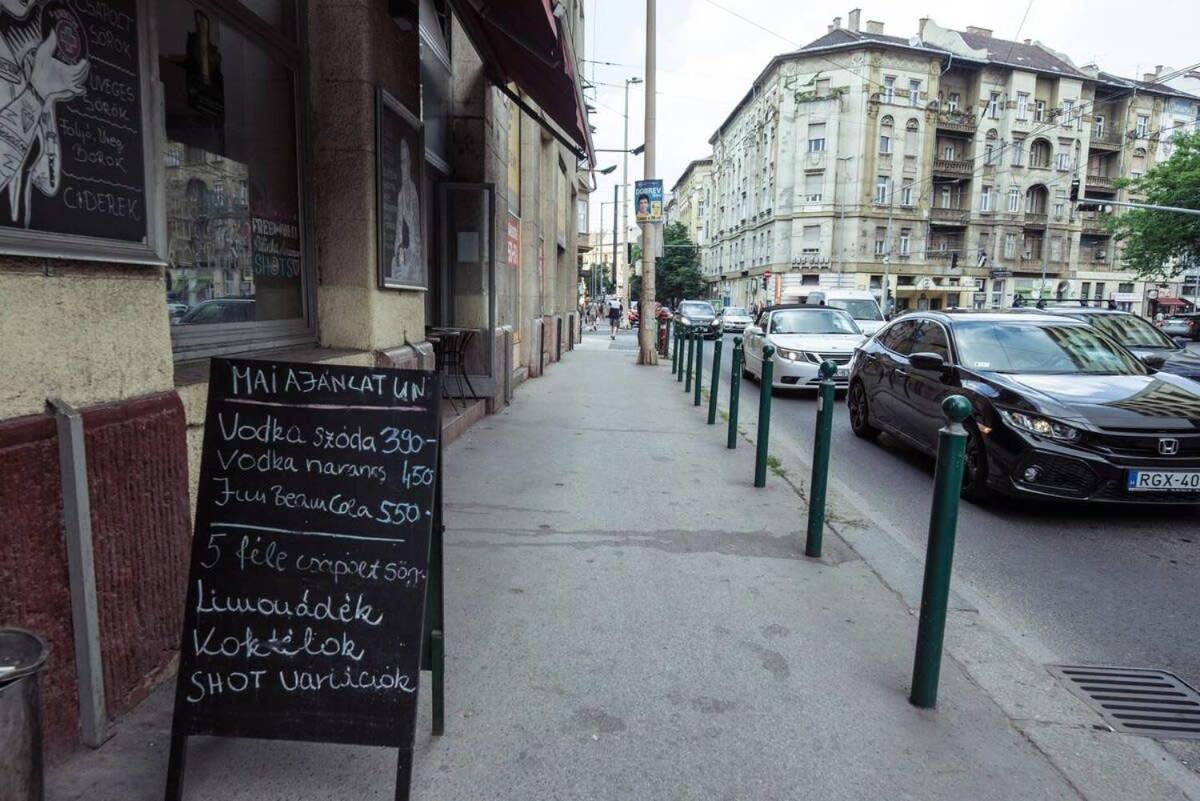 CSAPOLT
SÖRÖK
ÜVEGES
SÖRÖK
Folyó, üveg
BOROK
CIDEREK
FREE WIFI!
SHOTS
MAI AJÁNLATUNK
Vodka szóda 390-
Vodka narancs 450
Jim Beam Cola 550-
5 féle csapolt sör
Limonádék
Koktélok
SHOT variációk
DOBREV
RGX-40